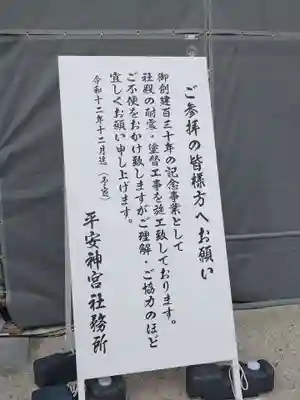 ご参拝の皆様方へお願い
御創建百三十年の記念事業として
社殿の耐震・塗替工事を施工致しております。
ご不便をおかけ致しますがご理解・ご協力のほど
宜しくお願い申し上げます。
令和十二年十二月迄(予定)
平安神宮社務所